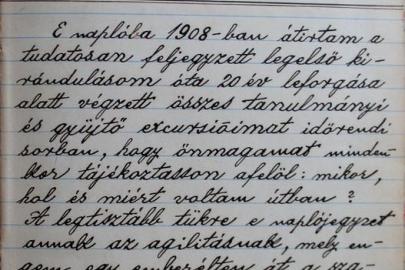 E naplóba 1908-ban átirtam a
tudatosan feljegyzett legelső ki-
rándulásom óta 20 év leforgása
alatt végzett összes tanulmányi
és gyüjtő excursióimat időrendi
sorban, hogy önmagamat minden-
kor tájékoztasson afelöl: mikor,
hol és miért voltam útban?
A legtisztább tükre e naplójegyzet
annak az agilitásnak, mely en-
gem egy emberélten át a sza-